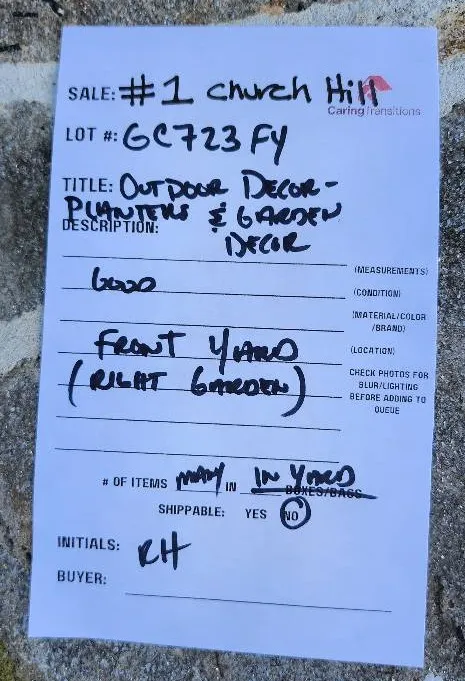 SALE: #1 Church Hill
CaringTransitions
LOT #: GC723FY
TITLE: OUTDOOR DECOR-
PLANTERS & GARDEN
DESCRIPTION: DECOR
(MEASUREMENTS)
GOOD (CONDITION)
(MATERIAL/COLOR
/BRAND)
FRONT YARD (LOCATION)
(RIGHT GARDEN) CHECK PHOTOS FOR
BLUR/LIGHTING
BEFORE ADDING TO
QUEUE
# OF ITEMS MANY IN IN YARD
BOXES/BAGS
SHIPPABLE: YES NO
INITIALS: RH
BUYER: